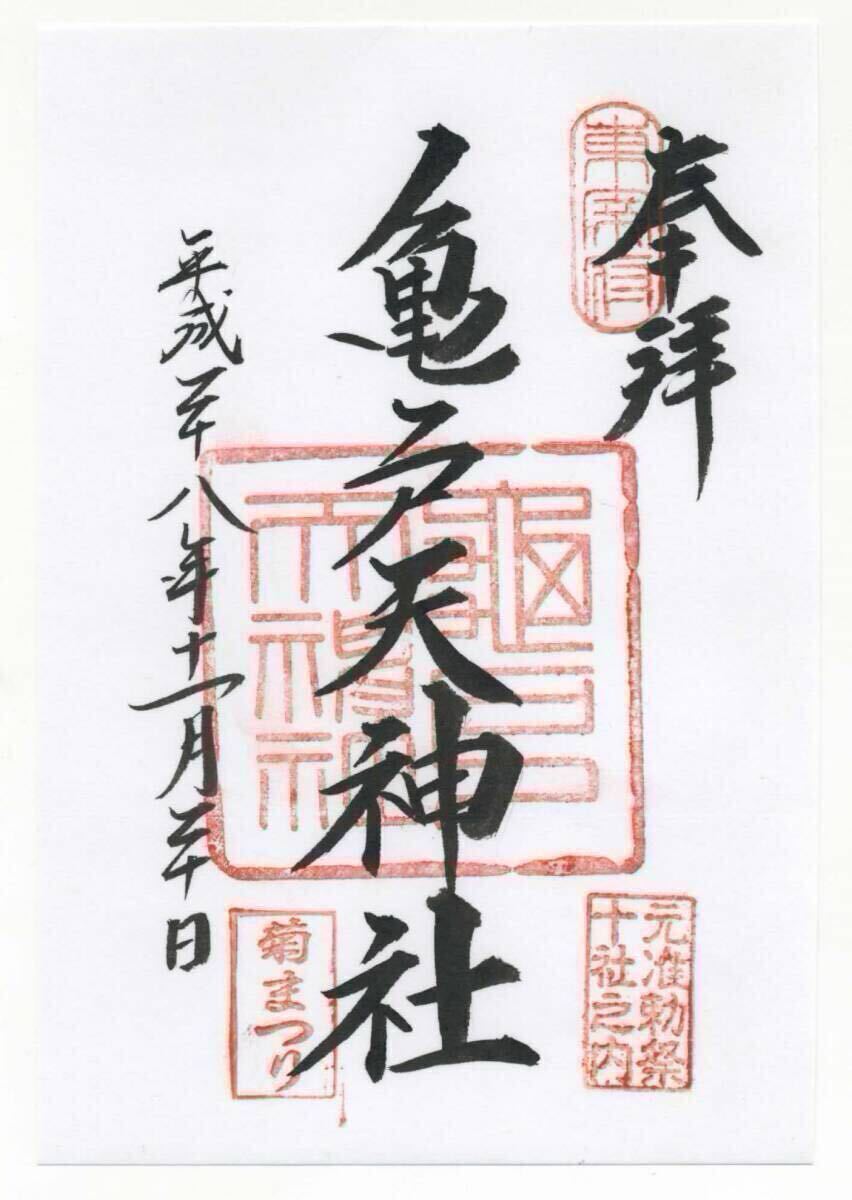 奉拝
東宰府
亀戸天神社
亀戸天神社
元准勅祭
十社之内
平成二十八年十一月二十日
菊まつり